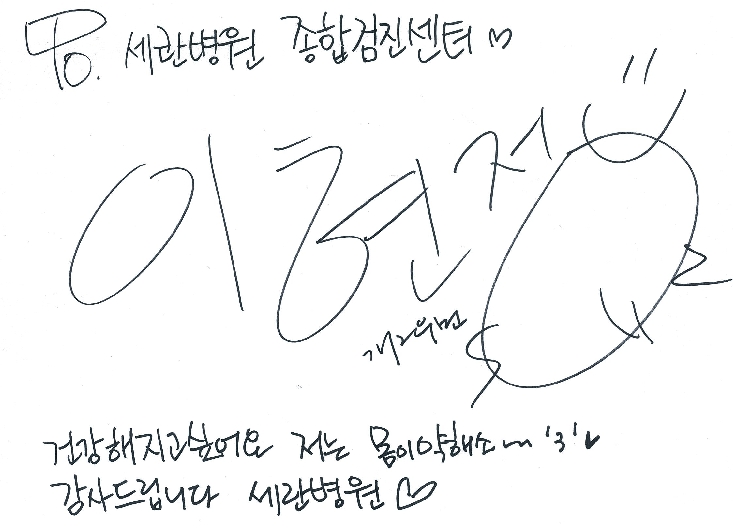 To. 세란병원 종합검진센터♡
이현정
개그우먼
건강해지고싶어요 저는 몸이약해소~~ '3'♥
감사드립니다 세란병원♡